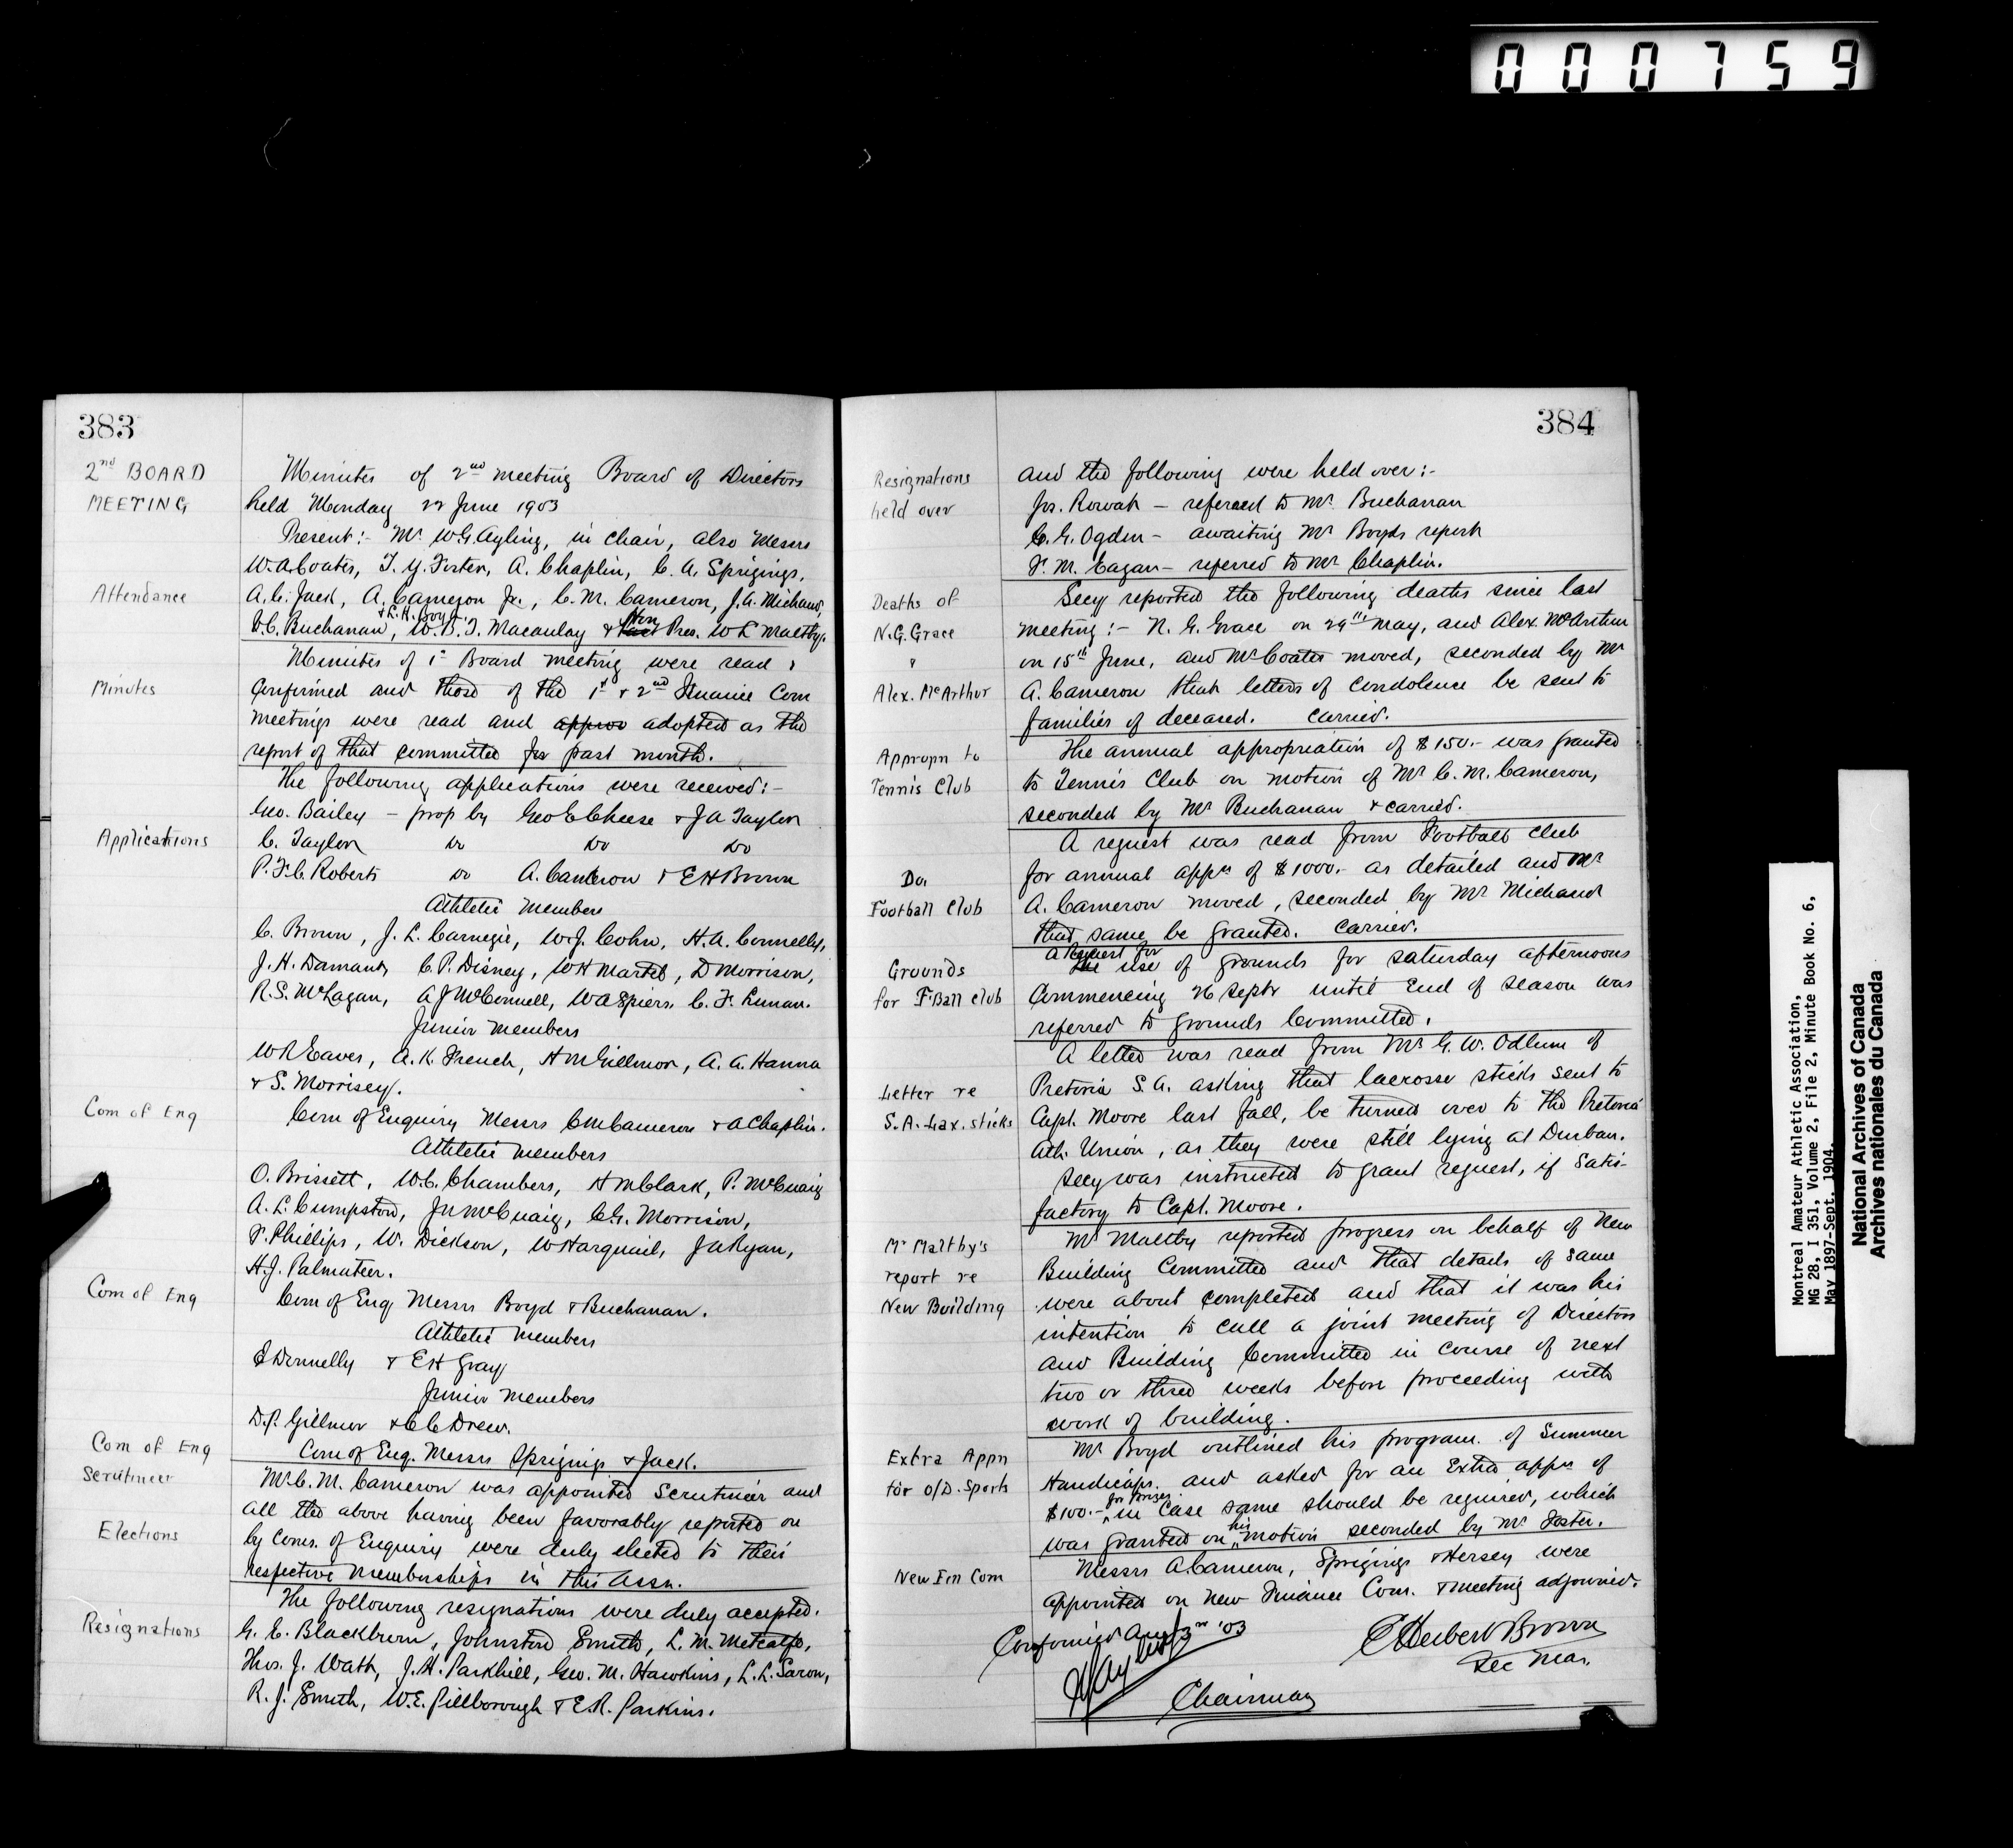 000759
383
2nd BOARD
MEETING
Minutes of 2nd meeting Board of Directors
held Monday 22 June 1903
Present:- Mr W.G. Ayling, in chair, also Messrs
W.A. Coates, T.Y. Foster, A. Chaplin, C.A. Sprigings,
Attendance
A.C. Jack, A. Cameron Jr., C.M. Cameron, J.A. Michaud,
& L.H. Boyd Hon
D.C. Buchanan, W.B.T. Macaulay & Pres. W L Maltby.
Minutes of 1st Board meeting were read &
Minutes
Confirmed and those of the 1st & 2nd Finance Com
meetings were read and approv adopted as the
report of that committee for past month.
The following applications were received:-
Geo. Bailey - prop by Geo E Cheese & J A Taylor
Applications
C. Taylor Do Do Do
P.F.C. Roberts Do A. Cameron & E H Brown
Athletic Members
C. Brown, J.L. Carnegie, W.J. Cohn, H.A. Connelly,
J.H. Damant, C.P. Disney, W H Martel, D Morrison,
R.S. McLagan, A J McConnell, W A Spiers, C.F.
Junior Members
W R Eaves, A.K. French, H M Gillmor, A.A. Hanna
& S. Morrisey.
Com of Eng
Com of Enquiry Messrs C M Cameron & A Chaplin.
Athletic Members
O. Brissett, W.C. Chambers, H M Clark, P. McCuaig
A.L. Cumpston, Jn McCuaig, C.G. Morrison,
F. Phillips, W. Dickson, W Harquail, J A Ryan,
H.J. Palmateer.
Com of Eng
Com of Eng Messrs Boyd & Buchanan.
Athletic Members
Donnelly & E H Gray
Junior Members
D.P. Gillmor & C C Drew.
Com of Eng
Com of Eng. Messrs Sprigings & Jack.
Scrutineer
Mr C.M. Cameron was appointed Scrutineer and
all the above having been favorably reported on
Elections
by Coms. of Enquiry were duly elected to their
respective Memberships in this Assn.
The following resignations were duly accepted.
Resignations
G.E. Blackburn, Johnston Smith, L.M. Metcalfe,
Thos. J. Watt, J.H. Parkhill, Geo. M. Hawkins, L.L.
R.J. Smith, W.E. Pillborough & E.R. Parkins.
384
Resignations
held over
and the following were held over:-
Jos. Rowat - referred to Mr. Buchanan
C.G. Ogden - awaiting Mr Boyds report
F.M. Eagan - referred to Mr Chaplin.
Deaths of
Secy reported the following deaths since last
N.G. Grace
meeting:- N.G. Grace on 29th May, and Alex. McArthur
&
on 15th June, and Mr Coates moved, seconded by Mr
Alex. McArthur
A. Cameron that letters of condolence be sent to
families of deceased. Carried.
Appropn to
The annual appropriation of $150.- was granted
Tennis Club
to Tennis Club on motion of Mr C.M. Cameron,
seconded by Mr Buchanan & carried.
A request was read from Football Club
Do.
for annual appn of $1000.- as detailed and Mr
Football Club
A. Cameron moved, seconded by Mr Michaud
that same be granted. Carried.
A Request for
Grounds
The use of grounds for Saturday afternoons
for F.Ball Club
Commencing 26 Septr until end of season was
referred to Grounds Committee.
A letter was read from Mr G.W. Odlum of
Letter re
Pretoria S.A. asking that lacrosse sticks sent to
S.A. Lax. sticks
Capt. Moore last fall, be turned over to the Pretoria
Ath. Union, as they were still lying at Durban.
Secy was instructed to grant request, if satis-
factory to Capt. Moore.
Mr Maltby's
Mr Maltby reported progress on behalf of New
report re
Building Committee and that details of same
New Building
were about completed and that it was his
intention to call a joint meeting of Directors
and Building Committee in course of next
two or three weeks before proceeding with
work of building.
Extra Appn
Mr Boyd outlined his program of Summer
for O/D. Sports
Handicaps and asked for an Extra appn of
for Prizes
$100.- in case same should be required, which
his
was granted on motion seconded by Mr Foster.
New Fin Com
Messrs A. Cameron, Sprigings & Hersey were
appointed on New Finance Com. & meeting adjourned.
Confirmed Aug 3rd '03
E Herbert Brown
Sec Mar.
W G Ayling
Chairman
Montreal Amateur Athletic Association,
MG 28, I 351, Volume 2, File 2, Minute Book No. 6,
May 1897-Sept. 1904.
National Archives of Canada
Archives nationales du Canada